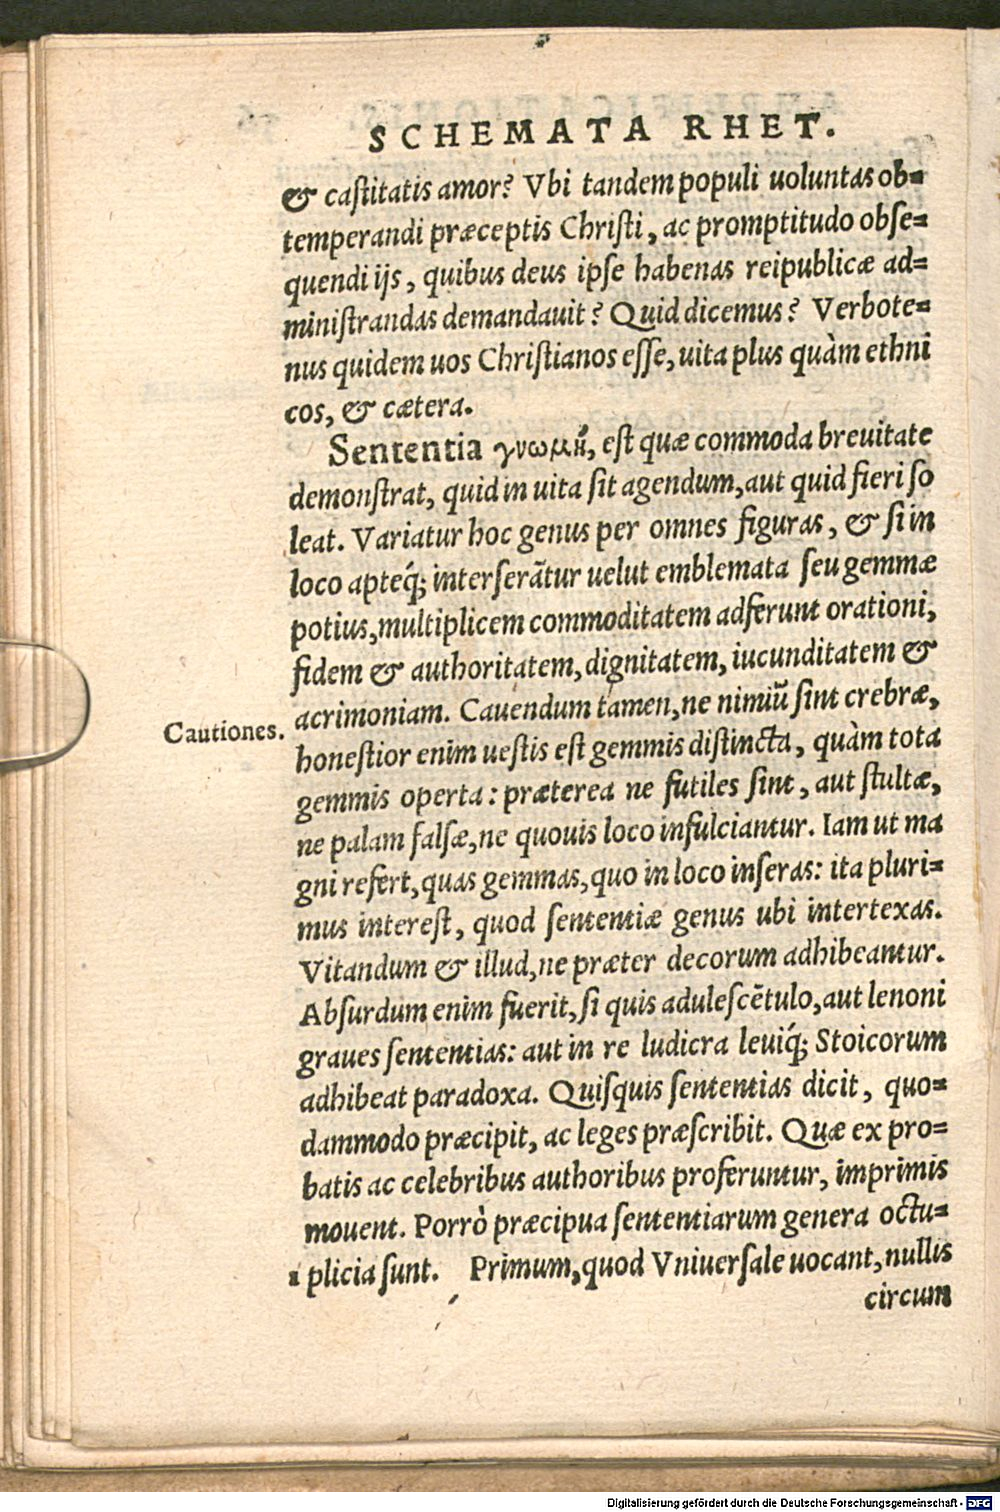 SCHEMATA RHET.
& castitatis amor? Vbi tandem populi uoluntas ob=
temperandi præceptis Christi, ac promptitudo obse=
quendi ijs, quibus deus ipse habenas reipublicæ ad=
ministrandas demandauit? Quid dicemus? Verbote=
nus quidem uos Christianos esse, uita plus quàm ethni
cos, & cætera.
Sententia γνωμὴ, est quæ commoda breuitate
demonstrat, quid in uita sit agendum, aut quid fieri so
leat. Variatur hoc genus per omnes figuras, & si in
loco apteq́; interserãtur uelut emblemata seu gemmæ
potius, multiplicem commoditatem adferunt orationi,
fidem & authoritatem, dignitatem, iucunditatem &
acrimoniam. Cauendum tamen, ne nimiũ sint crebræ,
Cautiones.
honestior enim uestis est gemmis distincta, quàm tota
gemmis operta: præterea ne futiles sint, aut stultæ,
ne palam falsæ, ne quouis loco infulciantur. Iam ut ma
gni refert, quas gemmas, quo in loco inseras: ita pluri=
mus interest, quod sententiæ genus ubi intertexas.
Vitandum & illud, ne præter decorum adhibeantur.
Absurdum enim fuerit, si quis adulescẽtulo, aut lenoni
graues sententias: aut in re ludicra leuiq́; Stoicorum
adhibeat paradoxa. Quisquis sententias dicit, quo=
dammodo præcipit, ac leges præscribit. Quæ ex pro=
batis ac celebribus authoribus proferuntur, imprimis
mouent. Porrò præcipua sententiarum genera octu=
plicia sunt. Primum, quod Vniuersale uocant, nullis
circum
Digitalisierung gefördert durch die Deutsche Forschungsgemeinschaft - DFG